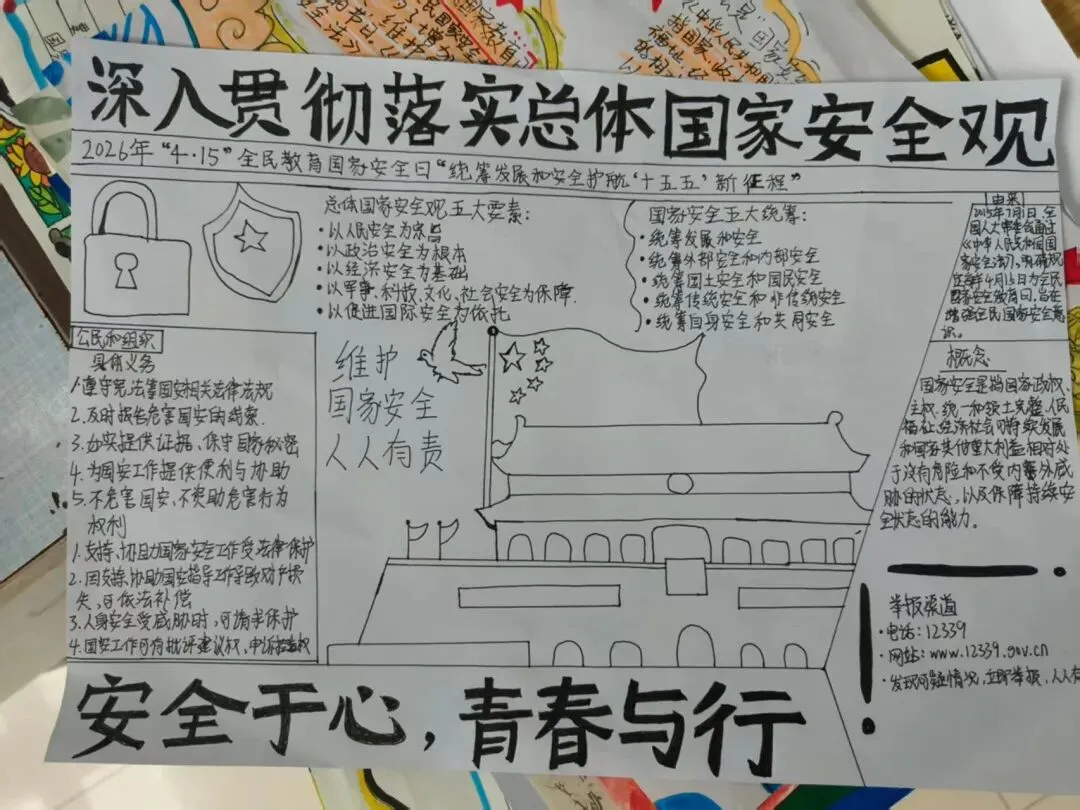 深入贯彻落实总体国家安全观
2026年“4·15”全民教育国家安全日“统筹发展和安全护航‘十五五’新征程”
总体国家安全观五大要素:
·以人民安全为宗旨
·以政治安全为根本
·以经济安全为基础
·以军事、科技、文化、社会安全为保障.
·以促进国际安全为依托
国家安全五大统筹:
·统筹发展和安全
·统筹外部安全和内部安全
·统筹国土安全和国民安全
·统筹传统安全和非传统安全
·统筹自身安全和共同安全
由来
2015年7月1日,全
国人大常委会通过
《中华人民共和国国
家安全法》,明确规
定每年4月15日为全民
国家安全教育日,旨在
增强全民国家安全意
识。
公民和组织
具体义务
1.遵守宪法等国安相关法律法规
2.及时报告危害国安的线索.
3.如实提供证据、保守国家秘密
4.为国安工作提供便利与协助
5.不危害国安、不资助危害行为
权利
1.支持、协助国家安全工作受法律保护
2.因支持、协助国安指导工作导致财产损
失,可依法补偿
3.人身安全受威胁时,可请求保护
4.国安工作可有批评建议权,申诉控告权
维护
国家安全
人人有责
概念
国家安全是指国家政权、
主权、统一和领土完整、人民
福祉、经济社会可持续发展
和国家其他重大利益相对处
于没有危险和不受内外威
胁的状态,以及保障持续安
全状态的能力。
举报渠道
·电话:12339
·网站:www.12339.gov.cn
·发现可疑情况,立即举报,人人有
安全于心,青春与行